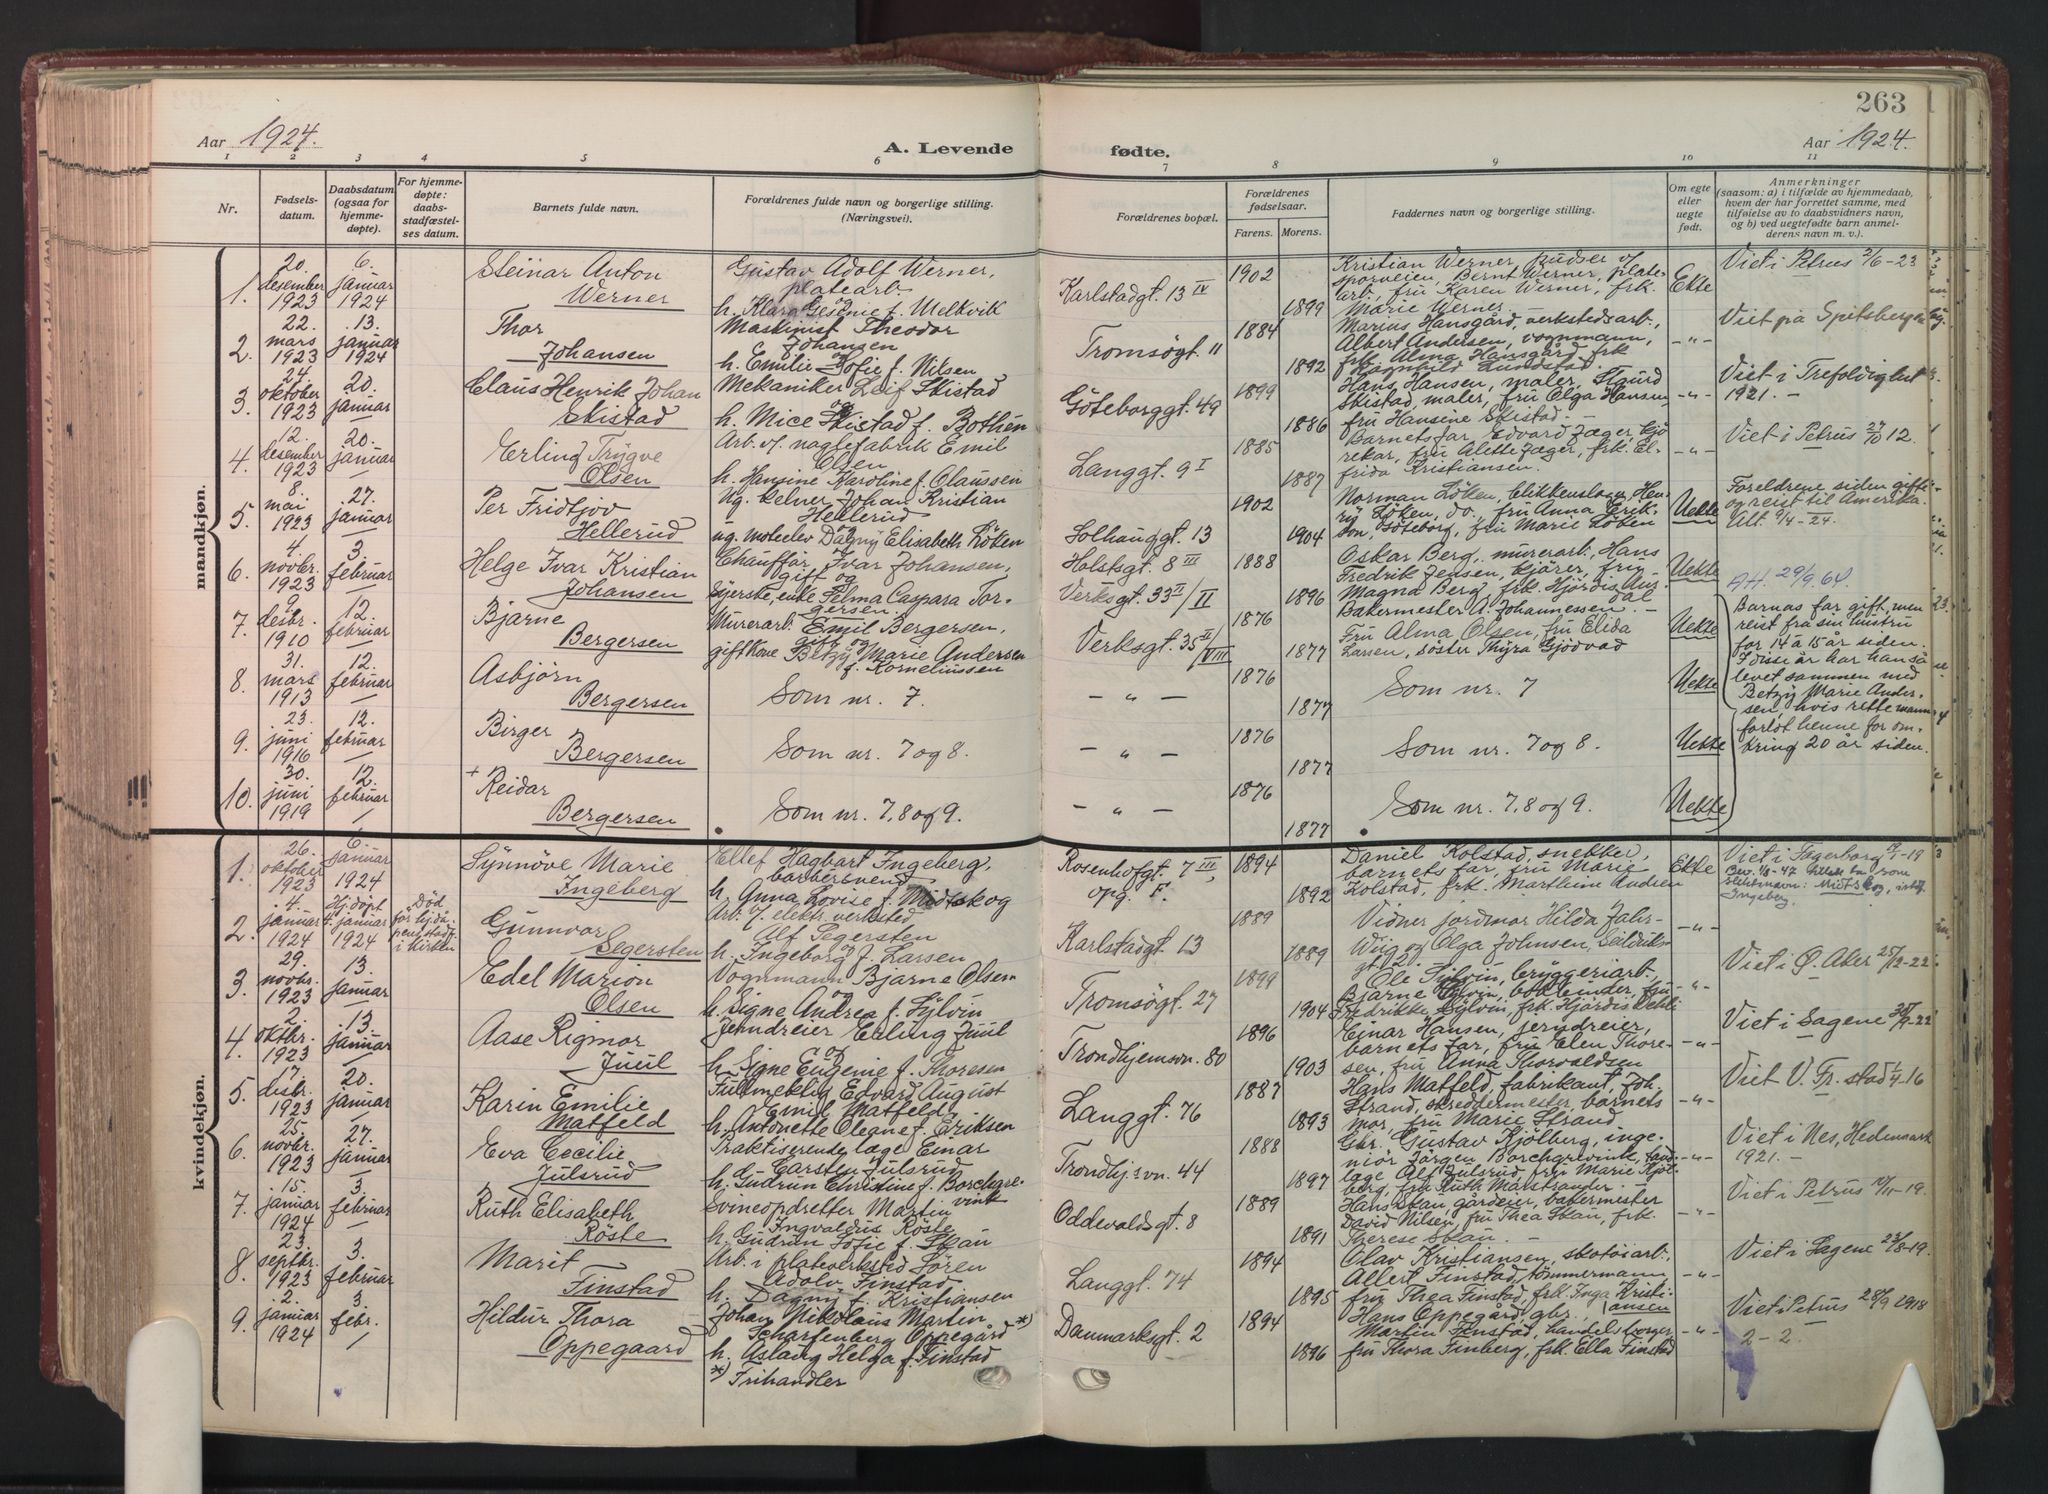 263
Aar 1924.
A. Levende
fødte.
Aar 1924.
1 2 3 4 5 6 7 8 9 10 11
Nr.
Fødsels-
datum.
Daabsdatum
(ogsaa for
hjemme-
døpte).
For hjemme-
døpte:
daabs-
stadfæstel-
ses datum.
Barnets fulde navn.
Forældrenes fulde navn og borgerlige stilling.
(Næringsvei).
Forældrenes bopæl.
Forældrenes
fødselsaar.
Farens. Morens.
Faddernes navn og borgerlige stilling.
Om egte
eller
uegte
født.
Anmerkninger
(saasom: a) i tilfælde av hjemmedaab,
hvem der har forrettet samme, med
tilføielse av to daabsvidners navn,
og b) ved uegtefødte barn anmel-
derens navn m. v.).
mandkjøn.
1.
20.
desember
1923
6.
januar
1924
Steinar Anton
Werner
Gustav Adolf Werner,
platearb.
og
h. Klara Gesine f. Melkvik
Karlstadgt. 13 IV
1902
1899
Kristian Werner, budser v/
sporveien, Bernt Werner, plate-
arb., fru Karen Werner, frk.
Marie Werner.
Ekte
Viet i Petrus 2/6-23
2.
22.
mars
1923
13.
januar
1924
Thor
Johansen
Maskinist Theodor
Johansen
og
h. Emilie Sofie f. Nilsen
Tromsøgt. 11
1884
1892
Marius Hansgård, verkstedsarb.,
Albert Andersen, vognmann,
frk. Alma Hansgård, frk
Ragnhild Lundstad.
-"-
Viet på Spitsbergen
3.
24
oktober
1923
20.
januar
Claus Henrik Johan
Skistad
Mekaniker Leif Skistad
og
h. Mice Skistad f. Bothen
Göteborggt. 49
1899
1886
Hans Hansen, maler, Sigurd
Skistad, maler, fru Olga Hansen,
fru Hansine Skistad.
-"-
Viet i Trefoldighet
1921. -
4.
12.
desember
1923
20.
januar
Erling Trygve
Olsen
Arb. v/ naglefabrik Emil
Olsen
h. Hansine Karoline f. Olaussen
Langgt. 9 I
1885
1887
Barnets far, Edvard Jæger, kjö-
rekar, fru Alette Jæger, frk. El-
frida Kristiansen.
-"-
Viet i Petrus 27/10 12.
5.
8.
mai
1923
27.
januar
Per Fridtjov
Hellerud
Ug. kelner Johan Kristian
Hellerud
ug. motelev Dagny Elisabeth Löken
Solhauggt. 13
1902
1904
Norman Löken, blikkenslager, Hen-
ry Löken, do., fru Anna Erik-
son, Göteborg, fru Marie Löken
Uekte
Foreldrene siden gifte
og reist til Amerika.
Att. 9/4-24.
6.
4.
novbr.
1923
3.
februar
Helge Ivar Kristian
Johansen
Chauffør Ivar Johansen,
gift og
Syerske, enke Selma Caspara Tor-
gersen.
Holstsgt. 8 III
Verksgt. 33 II/II
1888
1896
Oskar Berg, murerarb., Hans
Fredrik Jensen, kjører, fru
Magna Berg, frk. Hjördis Aus-
dal
Bakermester A. Johannessen. -
Uekte
AH. 29/9.64.
7.
9.
desbr.
1910
12.
februar
Bjarne
Bergersen
Murerarb. Emil Bergersen,
gift og
gift kone Betzy Marie Andersen
f. Korneliussen
Verksgt. 35 II/VIII
1876
1877
Fru Alma Olsen, fru Elida
Larsen, söster Thyra Gjödvad
Uekte
Barnas far gift, men
reist fra sin hustru
for 14 à 15 år siden.
I disse år har han så
levet sammen med
Betzy Marie Ander-
sen hvis rette mann
forlot henne for om-
kring 20 år siden.
8.
31.
mars
1913
12.
februar
Asbjörn
Bergersen
Som nr. 7.
- " -
1876
1877
Som nr. 7
Uekte
9.
23.
juni
1916
12.
februar
Birger
Bergersen
Som nr. 7 og 8.
- " -
1876
1877
Som nr. 7 og 8.
Uekte
10.
30.
juni
1919
12.
februar
+ Reidar
Bergersen
Som nr. 7, 8 og 9.
- " -
1876
1877
Som nr. 7, 8 og 9.
Uekte
kvindekjøn.
1.
26.
oktober
1923
6.
januar
1924
Synnöve Marie
Ingeberg
Ellef Hagbart Ingeberg,
barbersvend
h. Anna Lovise f. Midtskog
Rosenhofgt. 7 III,
opg. F.
1894
1892
Daniel Kolstad, snekker,
barnets far, fru Marie
Kolstad, frk. Marthine Andsen
Ekte
Viet i Fagerborg 19/1-19
Bev. 1/8-47 som
slektsnavn: Midtskog, istf.
Ingeberg.
2.
4.
januar
1924
Hj.döpt
4. januar
1924
Död
før hj.då-
pens stadf.
i kirken
Gunnvor
Segersten
Arb. v/ elektr. verksted
Alf Segersten
og
h. Ingeborg f. Larsen
Karlstadgt. 13
1889
1889
Vidner jordmor Hilda Jahr-
Wiig og Olga Johnsen, Seilduks-
gt. 12.
-"-
3.
29.
novbr.
1923
13.
januar
Edel Marion
Olsen
Vognmann Bjarne Olsen
og
h. Signe Andrea f. Sylvin
Tromsögt. 27
1899
1904
Ole Sylvin, bryggeriarb.,
Bjarne Sylvin, bokbinder, fru
Fredrikke Sylvin, frk. Hjördis Dehli
-"-
Viet i Ø. Aker 25/12-22
4.
2.
oktbr.
1923
13.
januar
Aase Rigmor
Juul
Jerndreier Erling Juul
og
h. Signe Eugenie f. Thoresen
Trondhjemsvn. 80
1896
1903
Einar Hansen, jerndreier,
barnets far, fru Elen Thore-
sen, fru Anna Thorvaldsen
-"-
Viet i Sagene 30/9-22
5.
17.
desbr.
1923
20.
januar
Karin Emilie
Matfeld
Fullmektig Edvard August
Emil Matfeld
h. Antonette Oleane f. Eriksen
Langgt. 76
1887
1893
Hans Matfeld, fabrikant, Joh.
Strand, skreddermester, barnets
mor, fru Marie Strand
-"-
Viet V. Fr.stad 1/4-16
6.
25.
novbr.
1923
27.
januar
Eva Cecilie
Julsrud
Praktiserende læge Einar
Carsten Julsrud
h. Gudrun Christine f. Borchgre-
vink
Trondhj.svn. 44
1888
1897
Gbr. Gustav Kjölberg, inge-
niör Jörgen Borchgrevink, tand-
læge Alf Julsrud, fru Marie Kjöl-
berg, fru Ruth Malstrander. -
-"-
Viet i Nes, Hedemark
1921. -
7.
15.
januar
1924
3.
februar
Ruth Elisabeth
Röste
Svineopdretter Martin
Ingvaldus Röste
h. Gudrun Sofie f. Skau
Oddevaldsgt. 8
1889
1891
Hans Skau, gårdeier, bakermester
David Nilsen, fru Thea Skau, frk.
Therese Skau. -
-"-
Viet i Petrus 10/11-19.
8.
23.
septbr.
1923
3.
februar
Marit
Finstad
Arb. i plateverksted Sören
Adolv Finstad
h. Dagny f. Kristiansen
Langgt. 74
1894
1895
Olav Kristiansen, skotöiarb.,
Allert Finstad, tömmermann,
fru Thea Finstad, frk. Inga Kristi-
ansen
-"-
Viet i Sagene 23/8-19.
9.
2.
januar
1924
3.
febr.
Hildur Thora
Oppegaard
Johan Nikolaus Martin
Scharfenberg Oppegård *)
h. Aslaug Helga f. Finstad
*) Frihandler
Danmarksgt. 2
1894
1896
Hans Oppegård, gbr.
Martin Finstad, handelsborger,
fru Thora Finberg, frk. Ella Finstad
-"-
Viet i Petrus 28/9 1918
2-2.